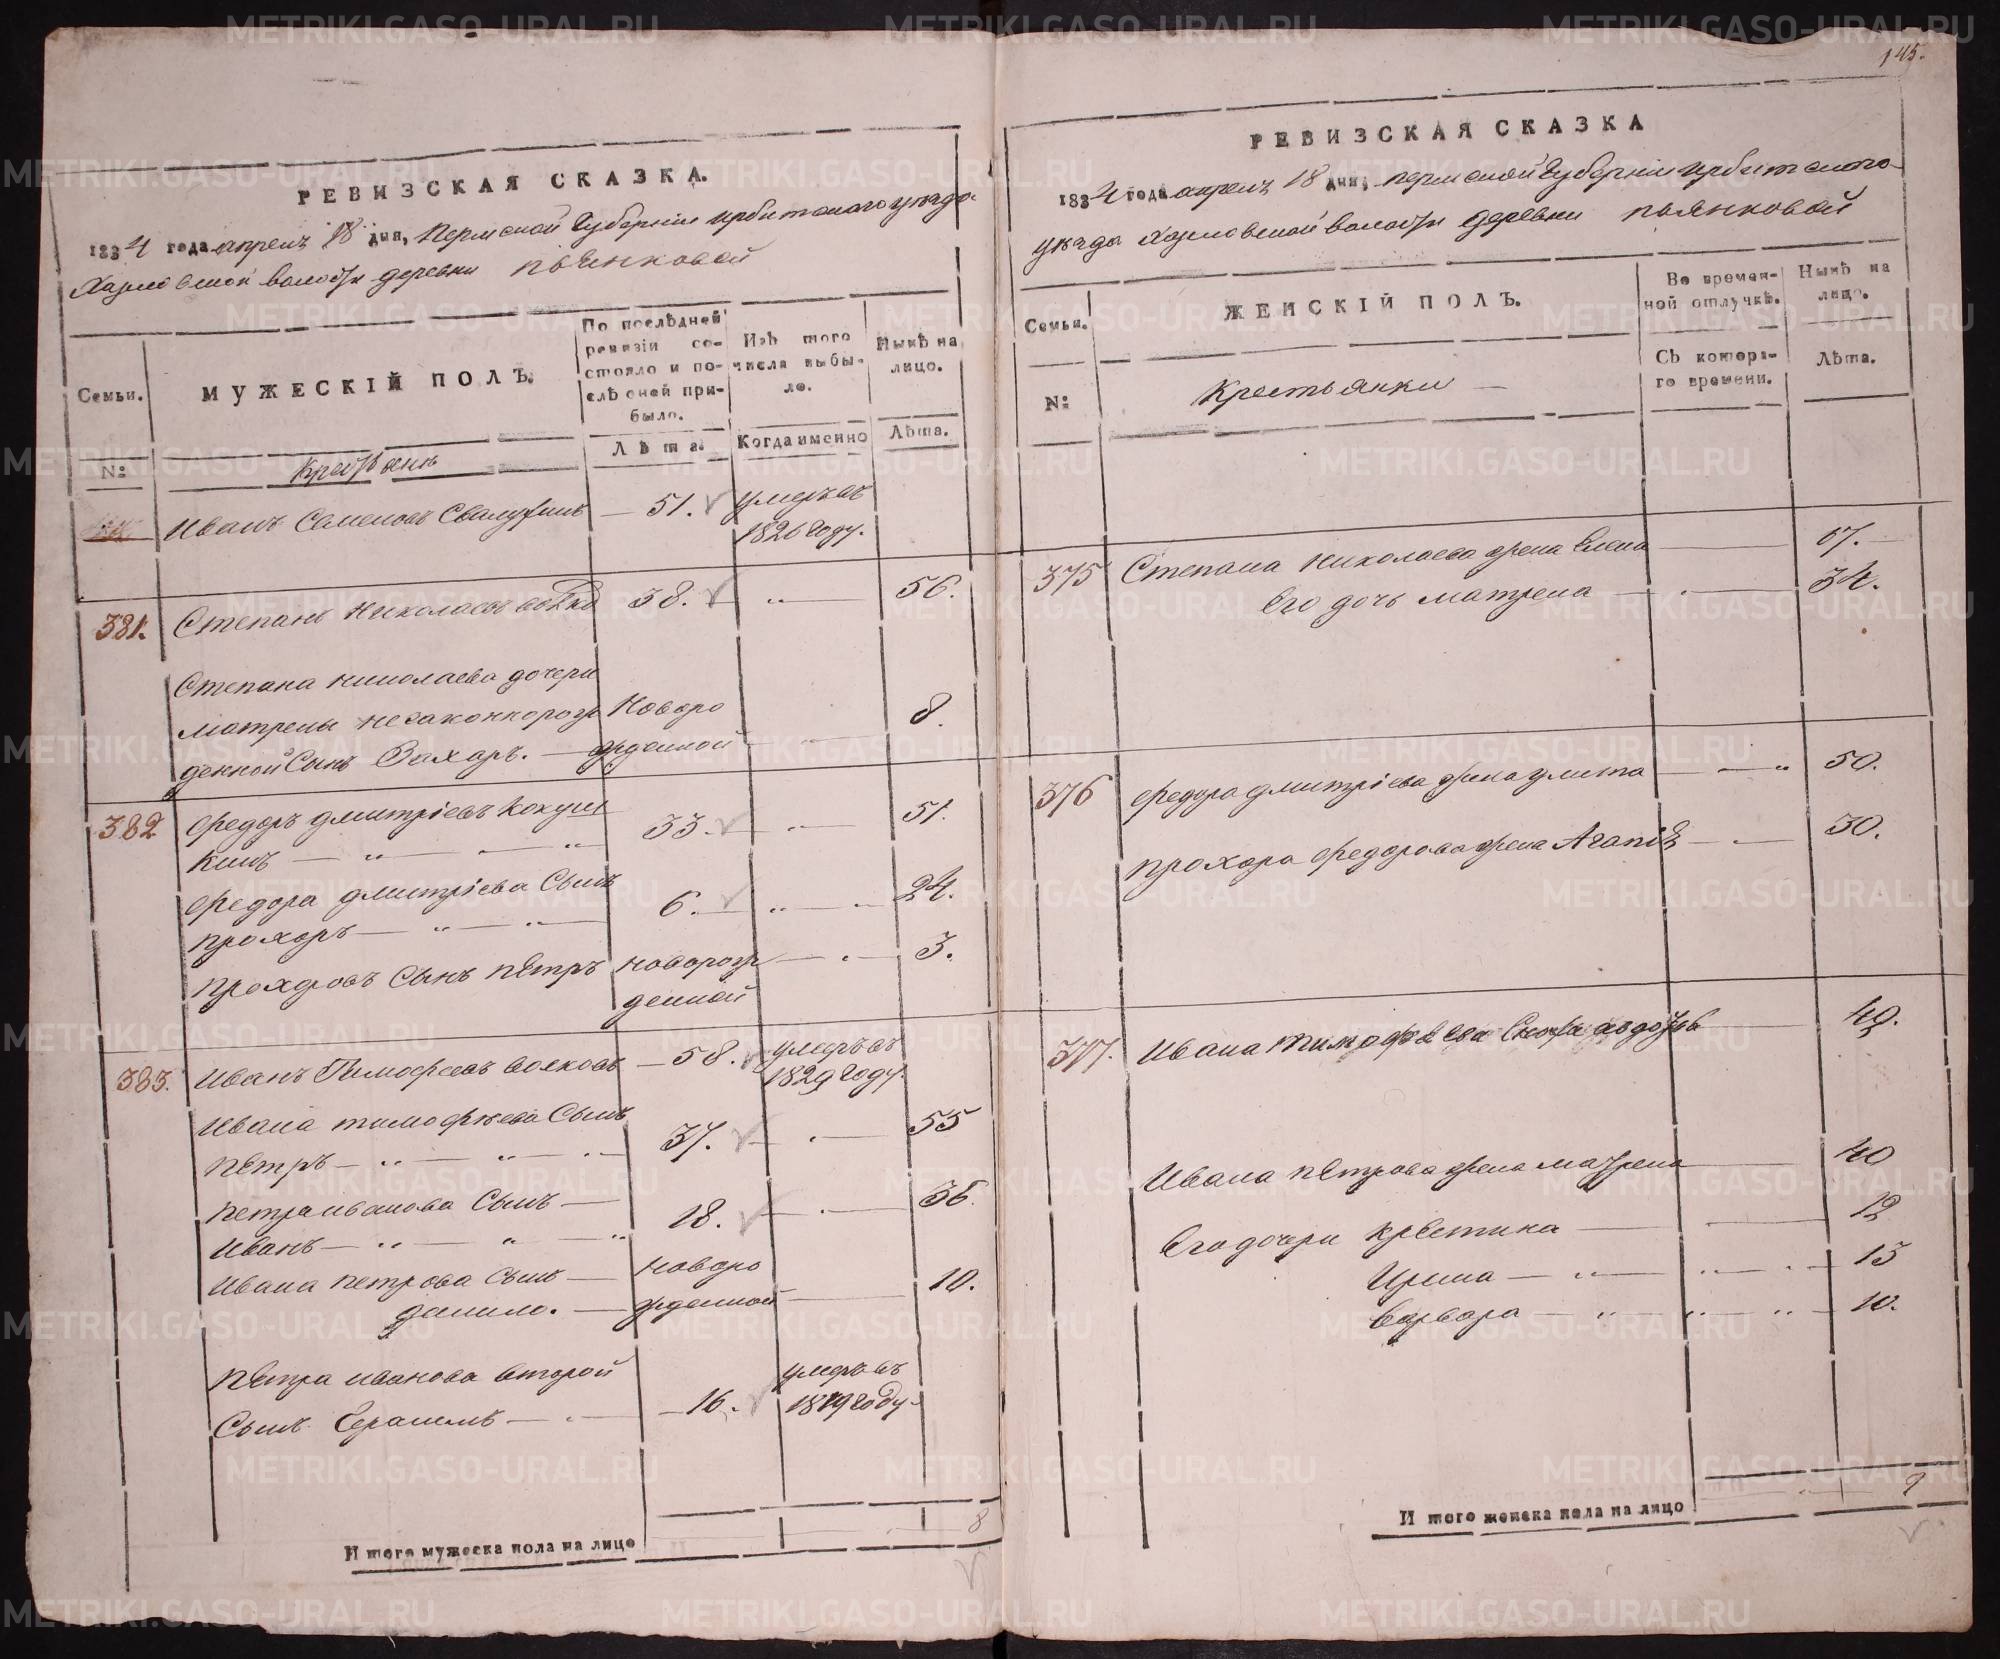 145.
РЕВИЗСКАЯ СКАЗКА.
1834 года апреля 18 дня, Пермской Губернии Ирбитского уезда
Харловской волости деревни Пьянковой
Семьи.
МУЖЕСКІЙ ПОЛЪ.
По послѣдней ревизіи состояло и послѣ оней прибыло.
Изъ того числа выбыло.
Нынѣ на лицо.
Лѣта.
Когда именно
Лѣта.
№
Крестьяне
Иванъ Семеновъ — 51. умеръ въ
1826 году.
381. Степанъ Николаевъ 38. — „ — 56.
Степана Николаева дочери
Матрены незаконнорож Новоро 8.
денной Сынъ Захаръ. — жденной
382 Федоръ Дмитріевъ Кокуш 33. — „ — 51.
кинъ — „ — „
Федора Дмитріева Сынъ 6. — „ — 24.
Прохоръ — „ — „
Прохоровъ Сынъ Петръ новорож — 3.
денной
383. Иванъ Тимофеевъ Волковъ — 58. умеръ въ
1829 году.
Ивана Тимофѣева Сынъ 37. — 55
Петръ — „ — „
Петра Иванова Сынъ — 18. — 36.
Иванъ — „ — „
Ивана Петрова Сынъ — новоро 10.
Данило. — жденной
Петра Иванова второй умеръ въ
Сынъ Герасимъ — 16. 1819 году.
И того мужеска пола на лицо 8
РЕВИЗСКАЯ СКАЗКА
1834 года апреля 18 дня, Пермской Губернии Ирбитского
уѣзда Харловской волости деревни Пьянковой
Семьи.
ЖЕНСКІЙ ПОЛЪ.
Во временной отлучкѣ.
Нынѣ на лицо.
№
Крестьянки —
Съ котораго времени.
Лѣта.
375 Степана Николаева жена Елена — 67.
Его дочь Матрена — 34.
376 Федора Дмитріева жена Улита — „ 50.
Прохора Федорова жена Агапія — 30.
377. Ивана Тимофѣева Сноха Авдотья 49.
Ивана Петрова жена Матрена 40
Его дочери Крестина — 19
Ирина — „ — „ — 13
Варвара — „ — „ — 10.
И того женска пола на лицо 9